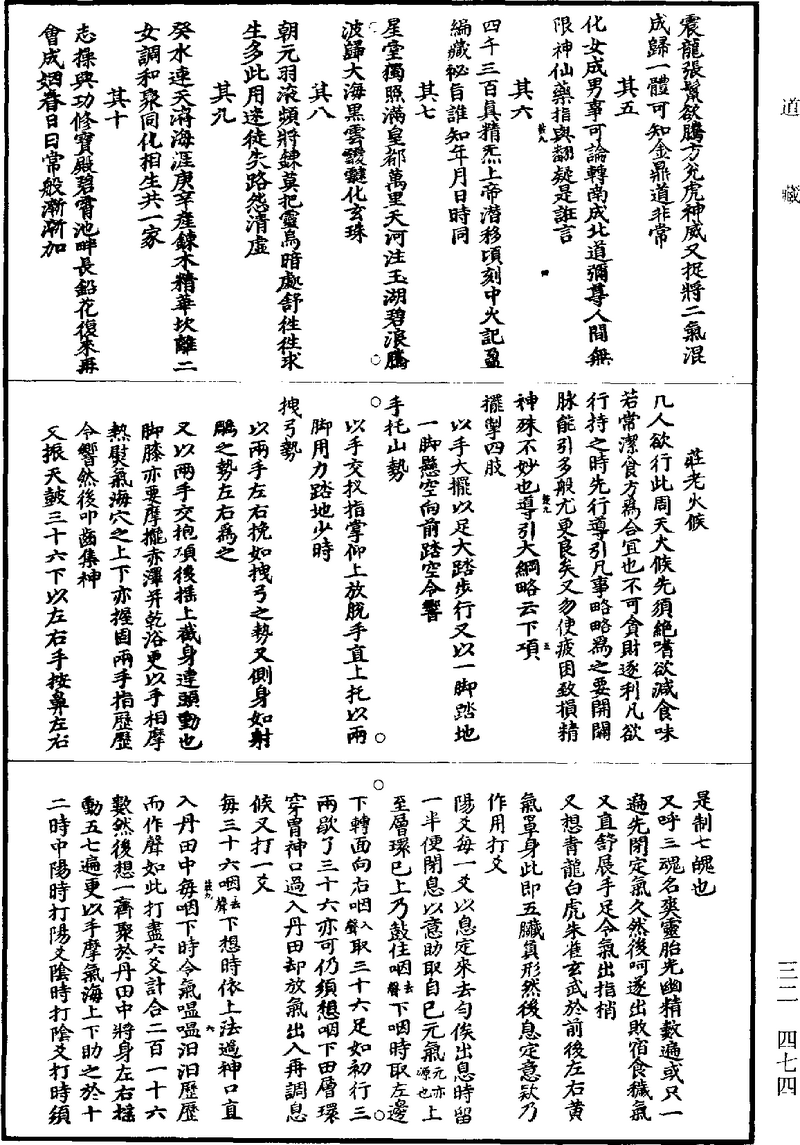 道藏
三二 四七四
震龍張鬣欲騰方兌虎神威又捉將二氣混
成歸一體可知金鼎道非常
其五
化女成男事可論轉南成北道彌尊人間無
限神仙藥指與翻疑是誑言
其六
四千三百真精炁上帝潛移頃刻中火記盈
編藏秘旨誰知年月日時同
其七
星堂獨照滿皇都萬里天河注玉湖碧浪騰
波歸大海黑雲靉靆化玄珠
其八
朝元羽液頻將鍊莫把靈烏暗處舒往往求
生多此用迷徒失路怨清虛
其九
癸水連天溺海涯庚辛產鍊木精華坎離二
女調和聚同化相生共一家
其十
志操與功修寶殿碧霄池畔長鉛花復來再
會成姻眷日日常般漸漸加
莊老火候
凡人欲行此周天火候先須絕嗜欲減食味
若常潔食方為合宜也不可貪財逐利凡欲
行持之時先行導引凡事略略為之要開關
脉能引多般尤更良矣又勿使疲困致損精
神殊不妙也導引大綱略云下項
擺掣四肢
以手大擺以足大踏步行又以一脚踏地
一脚懸空向前踏空令響
手托山勢
以手交扠指掌仰上放脫手直上托以兩
脚用力踏地少時
拽弓勢
以兩手左右挽如拽弓之勢又側身如射
鵰之勢左右為之
又以兩手交抱項後搖上截身連頭動也
脚膝亦要摩攏亦澤并乾浴更以手相摩
熱熨氣海穴之上下亦握固兩手指歷歷
令響然後叩齒集神
又振天鼓三十六下以左右手按鼻左右
是制七魄也
又呼三魂名爽靈胎光幽精數遍或只一
遍先閉定氣久然後呵遂出敗宿食穢氣
又直舒展手足令氣出指梢
又想青龍白虎朱雀玄武於前後左右黃
氣罩身此即五臟真形然後息定意欵乃
作用打爻
陽爻每一爻以息定來去勻俟出息時留
一半便閉息以意助取自己元氣元亦源也上
至層環已上乃鼓住咽去聲下咽時取左邊
下轉面向右咽入聲取三十六足如初行三
兩歇了三十六亦可仍須想咽下田層環
穿胃神口過入丹田却放氣出入再調息
候又打一爻
每三十六咽去聲下想時依上法過神口直
入丹田中每咽下時令氣嗢嗢汩汩歷歷
而作聲如此打盡六爻計合二百一十六
數然後想一齊聚於丹田中將身左右搖
動五七遍更以手摩氣海上下助之於十
二時中陽時打陽爻陰時打陰爻打時須